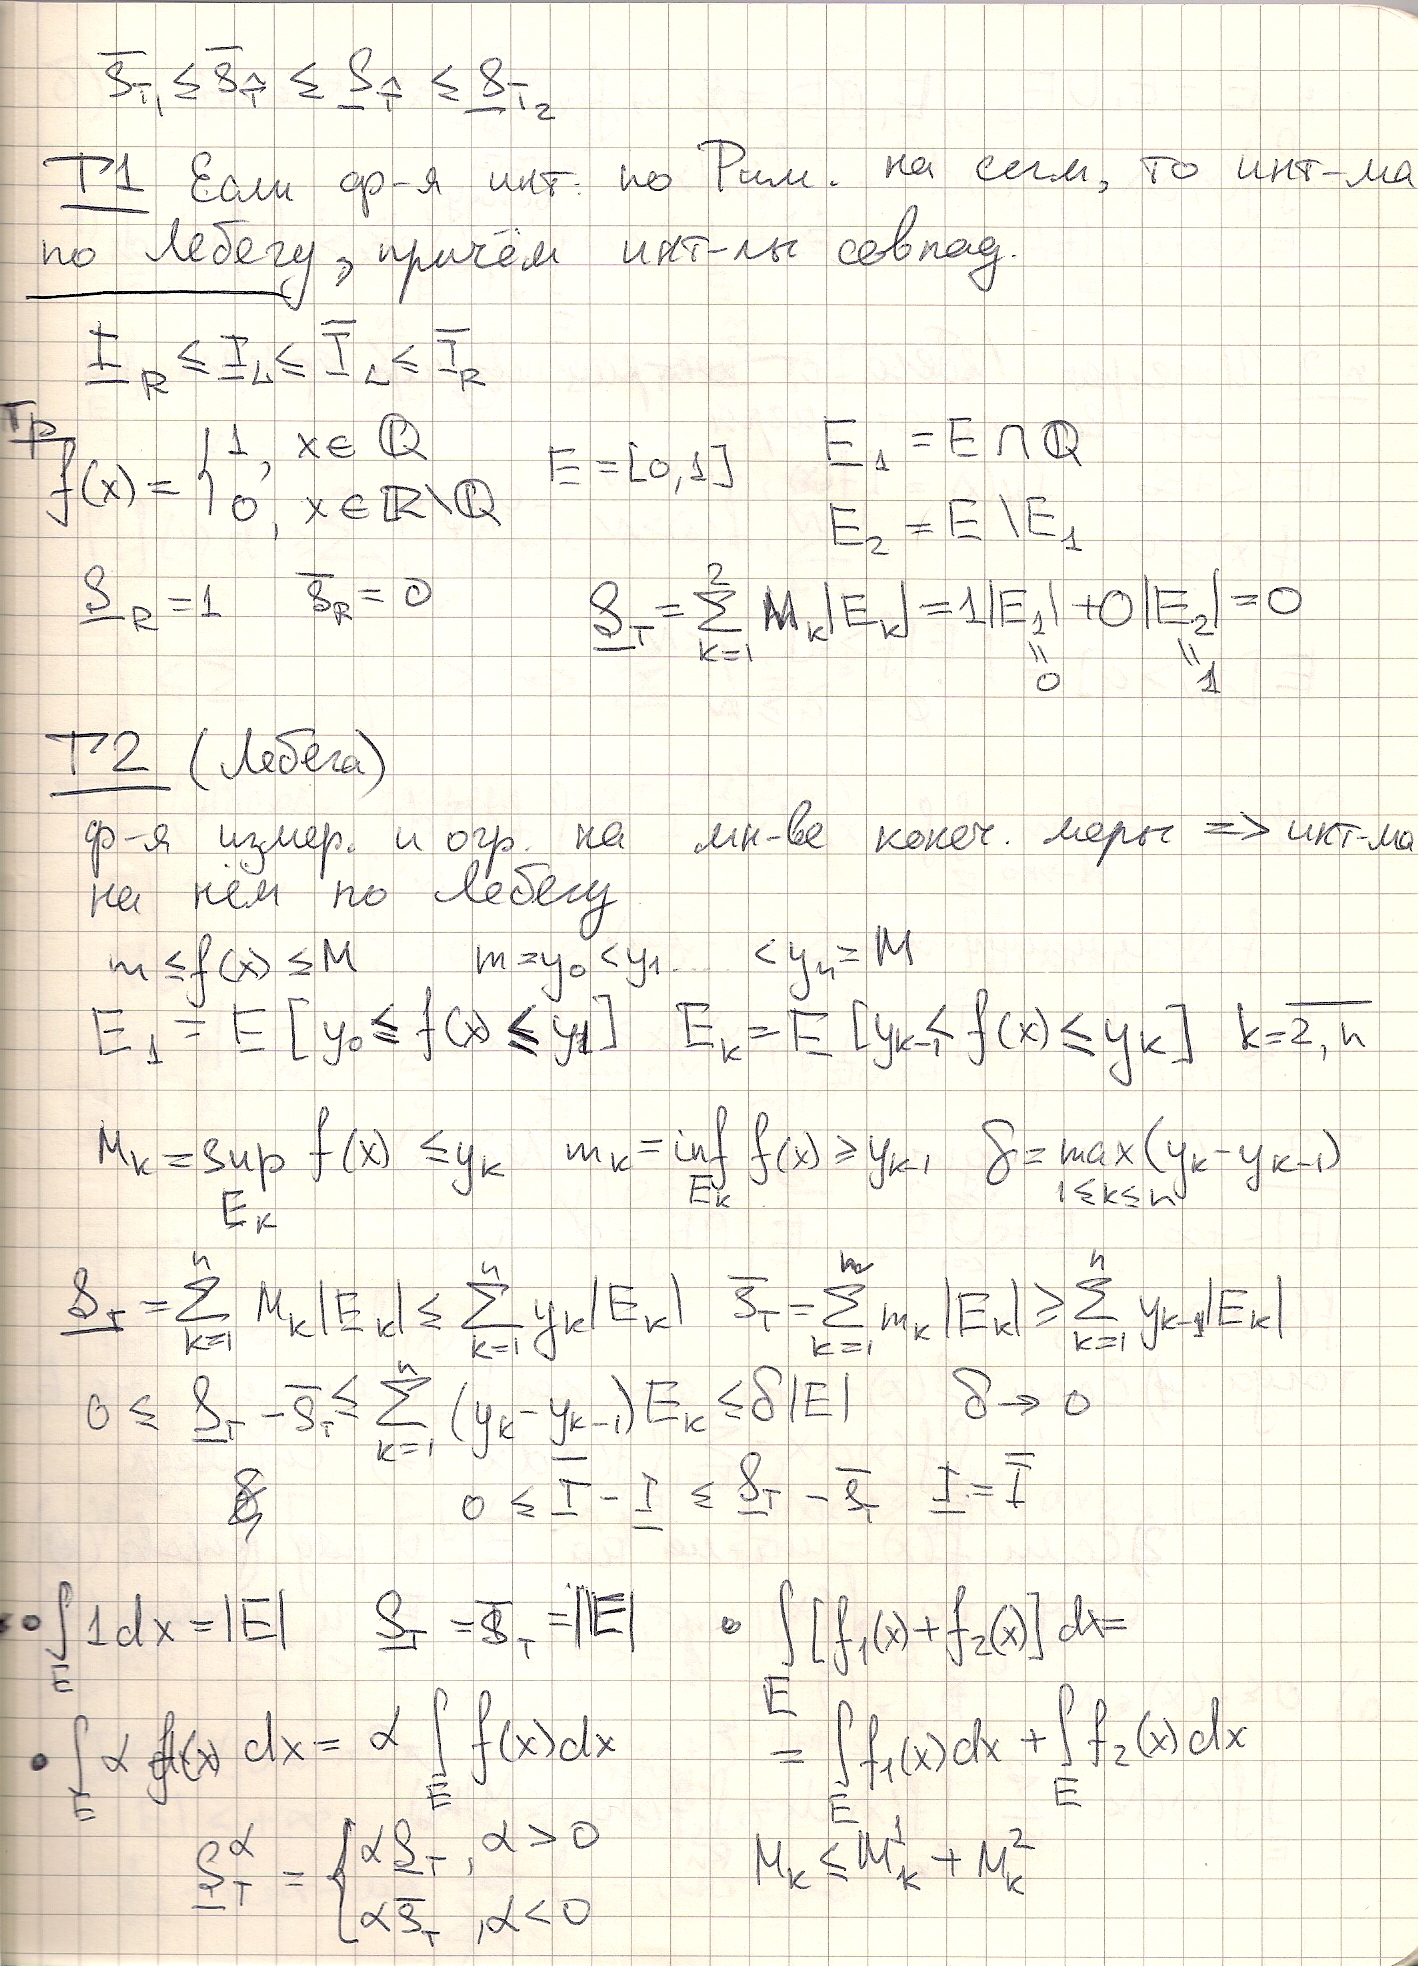 s̅_T₁ ≤ s̅_T̂ ≤ S̲_T̂ ≤ S̲_T₂
Т1 Если ф-я инт. по Рим. на сегм, то инт-ма
по Лебегу, причём инт-лы совпад.
I̲_R ≤ I̲_L ≤ I̅_L ≤ I̅_R
Пр
f(x) = { 1, x ∈ ℚ ; 0, x ∈ ℝ\ℚ E = [0,1] E₁ = E ∩ ℚ
E₂ = E \ E₁
S̲_R = 1 s̅_R = 0 S̲_T = ∑_{k=1}^{2} M_k|E_k| = 1|E₁| + 0|E₂| = 0
" 0 " 1
Т2 (Лебега)
ф-я измер. и огр. на мн-ве конеч. меры => инт-ма
на нём по Лебегу
m ≤ f(x) ≤ M m = y₀ < y₁ .... < y_n = M
E₁ = E [y₀ ≤ f(x) ≤ y₁] E_k = E [y_{k-1} < f(x) ≤ y_k] k = \overline{2, n}
M_k = sup_{E_k} f(x) ≤ y_k m_k = inf_{E_k} f(x) ≥ y_{k-1} δ = max_{1≤k≤n} (y_k - y_{k-1})
S̲_T = ∑_{k=1}^{n} M_k|E_k| ≤ ∑_{k=1}^{n} y_k|E_k| s̅_T = ∑_{k=1}^{n} m_k|E_k| ≥ ∑_{k=1}^{n} y_{k-1}|E_k|
0 ≤ S̲_T - s̅_T ≤ ∑_{k=1}^{n} (y_k - y_{k-1}) E_k ≤ δ|E| δ → 0
0 ≤ I̅ - I̲ ≤ S̲_T - s̅_T I̲ = I̅
• ∫_E 1 dx = |E| S̲_T = s̅_T = |E| • ∫_E [f₁(x) + f₂(x)] dx =
• ∫_E α f(x) dx = α ∫_E f(x) dx = ∫_E f₁(x) dx + ∫_E f₂(x) dx
S̲_T^α = { α S̲_T, α > 0 ; α s̅_T, α < 0 M_k ≤ M_k^1 + M_k^2